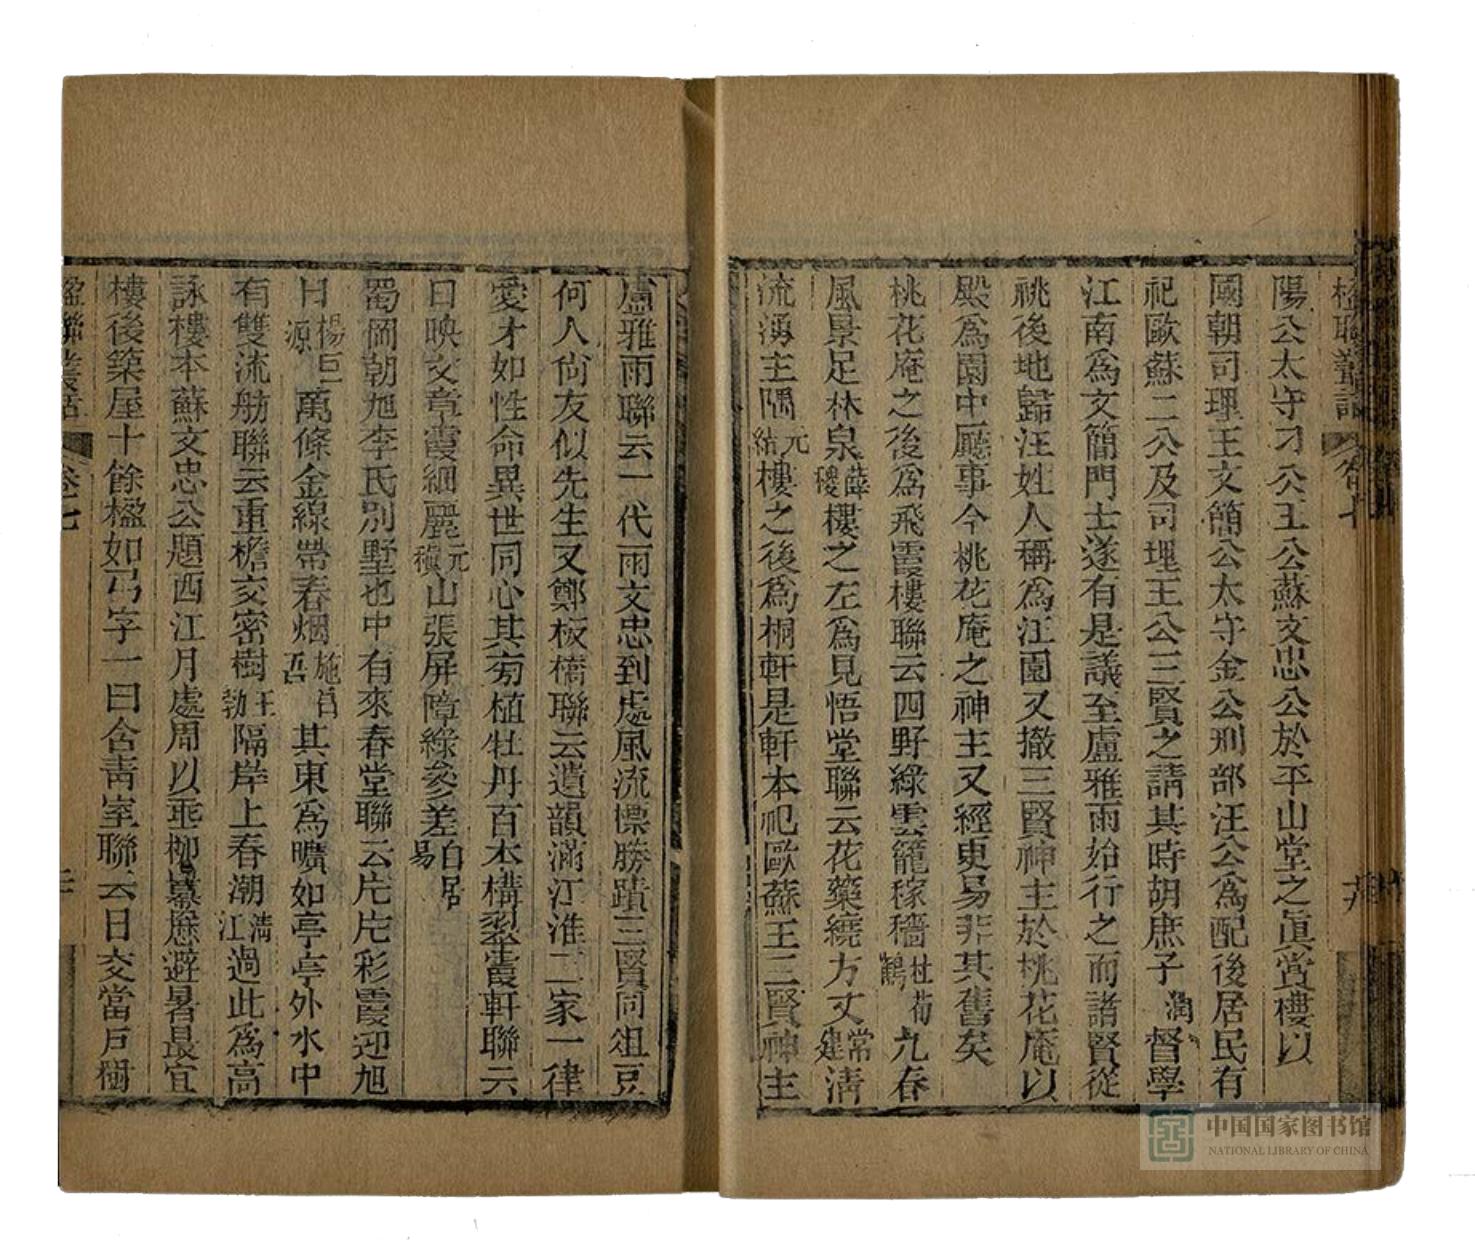 楹聯叢話 卷七
陽公太守刁公王公蘇文忠公於平山堂之眞賞樓以
國朝司理王文簡公太守金公刑部汪公為配後居民有
祀歐蘇二公及司理王公三賢之請其時胡庶子潤督學
江南為文簡門士遂有是議至盧雅雨始行之而諸賢從
祧後地歸汪姓人稱為汪園又撤三賢神主於桃花庵以
殿為園中廳事今桃花庵之神主又經更易非其舊矣
桃花庵之後為飛霞樓聯云四野綠雲籠稼穡杜荀鶴九春
風景足林泉薛稷樓之左為見悟堂聯云花藥繞方丈常建淸
流湧主隅元結樓之後為桐軒是軒本祀歐蘇王三賢神主
盧雅雨聯云一代兩文忠到處風流標勝蹟三賢同俎豆
何人尙友似先生又鄭板橋聯云遺韻滿江淮三家一律
愛才如性命異世同心其旁植牡丹百本構聚霞軒聯云
日映文章霞細麗元稹山張屏障綠參差白居易
蜀岡朝旭李氏別墅也中有來春堂聯云片片彩霞迎旭
日楊巨源萬條金線帶春烟施肩吾其東為曠如亭亭外水中
有雙流舫聯云重檐交密樹王勃隔岸上春潮淸江過此為高
詠樓本蘇文忠公題西江月處周以垂柳幕懸避暑最宜
樓後築屋十餘楹如弓字一曰含靑室聯云日交當戶樹
楹聯叢話 卷七